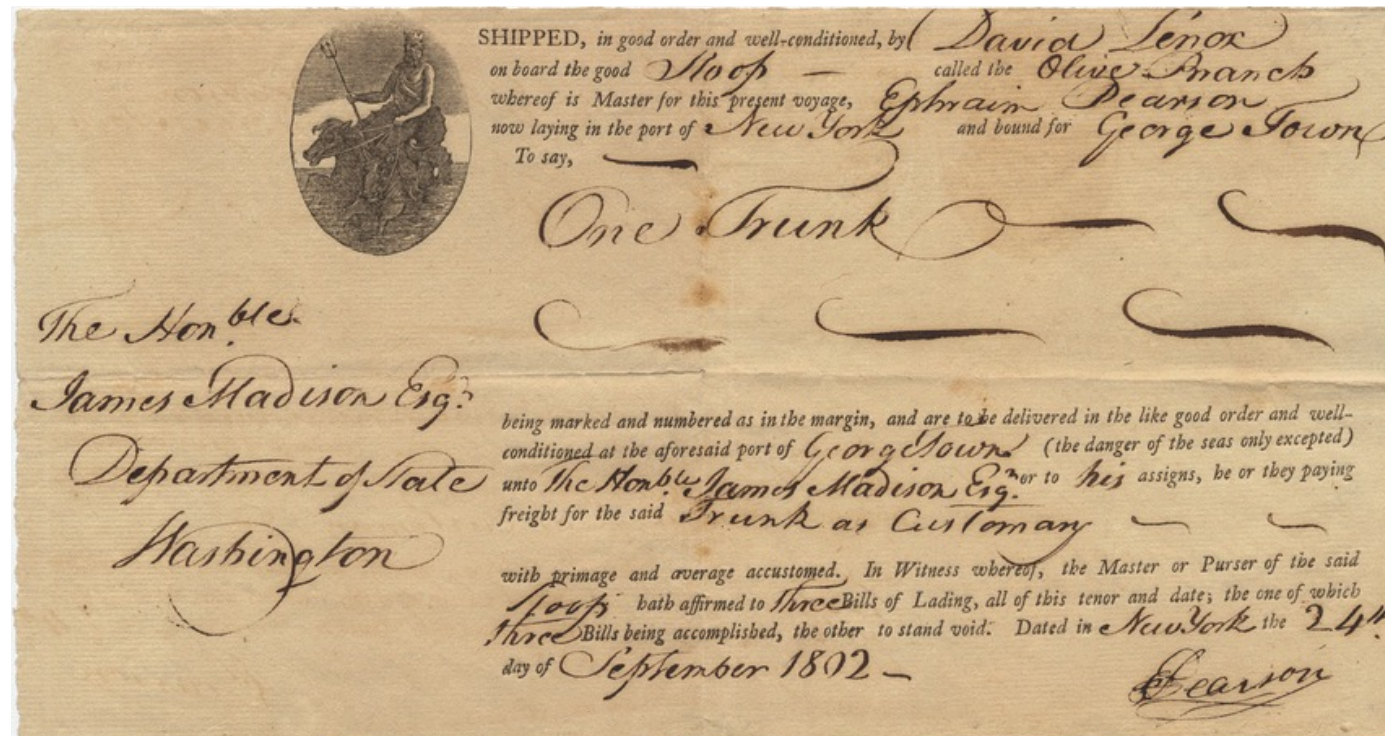 SHIPPED, in good order and well-conditioned, by David Lenox
on board the good Sloop — called the Olive Branch
whereof is Master for this present voyage, Ephraim Pearson
now laying in the port of New York and bound for George Town
To say, —
One Trunk
The Honble.
James Madison Esqr.
Department of State
Washington
being marked and numbered as in the margin, and are to be delivered in the like good order and well-
conditioned at the aforesaid port of GeorgeTown (the danger of the seas only excepted)
unto The Honble. James Madison Esqr. or to his assigns, he or they paying
freight for the said Trunk as Customary — —
with primage and average accustomed. In Witness whereof, the Master or Purser of the said
Sloop hath affirmed to Three Bills of Lading, all of this tenor and date; the one of which
three Bills being accomplished, the other to stand void. Dated in New York the 24th.
day of September 1802 —
E Pearson